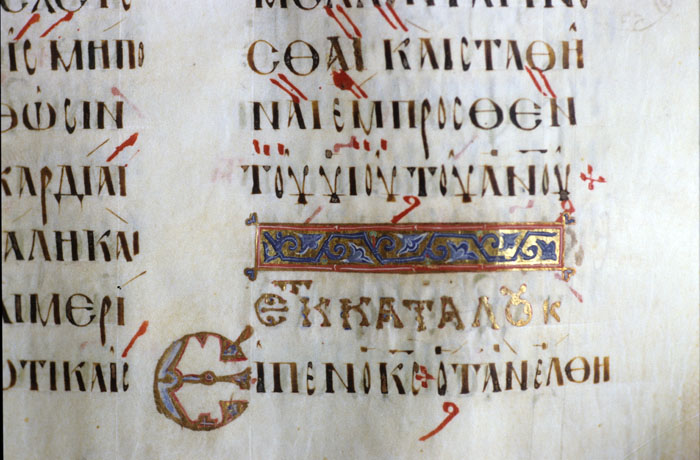 ΙϹ ΜΗΠΟ
ΘΩϹΙΝ
ΚΑΡΔΙΑΙ
ΑΛΗ ΚΑΙ
Ι ΜΕΡΙ
ΟΤΙΚΑΙϹ
ϹΘΑΙ ΚΑΙ ϹΤΑΘΗ
ΝΑΙ ΕΜΠΡΟϹΘΕΝ
ΤΟΥ ΥΙΟΥ ΤΟΥ ΑΝΟΥ
ΕΚ ΚΑΤΑ ΛΟΥΚ
ΕΙΠΕΝ Ο ΚϹ ΟΤΑΝ ΕΛΘΗ